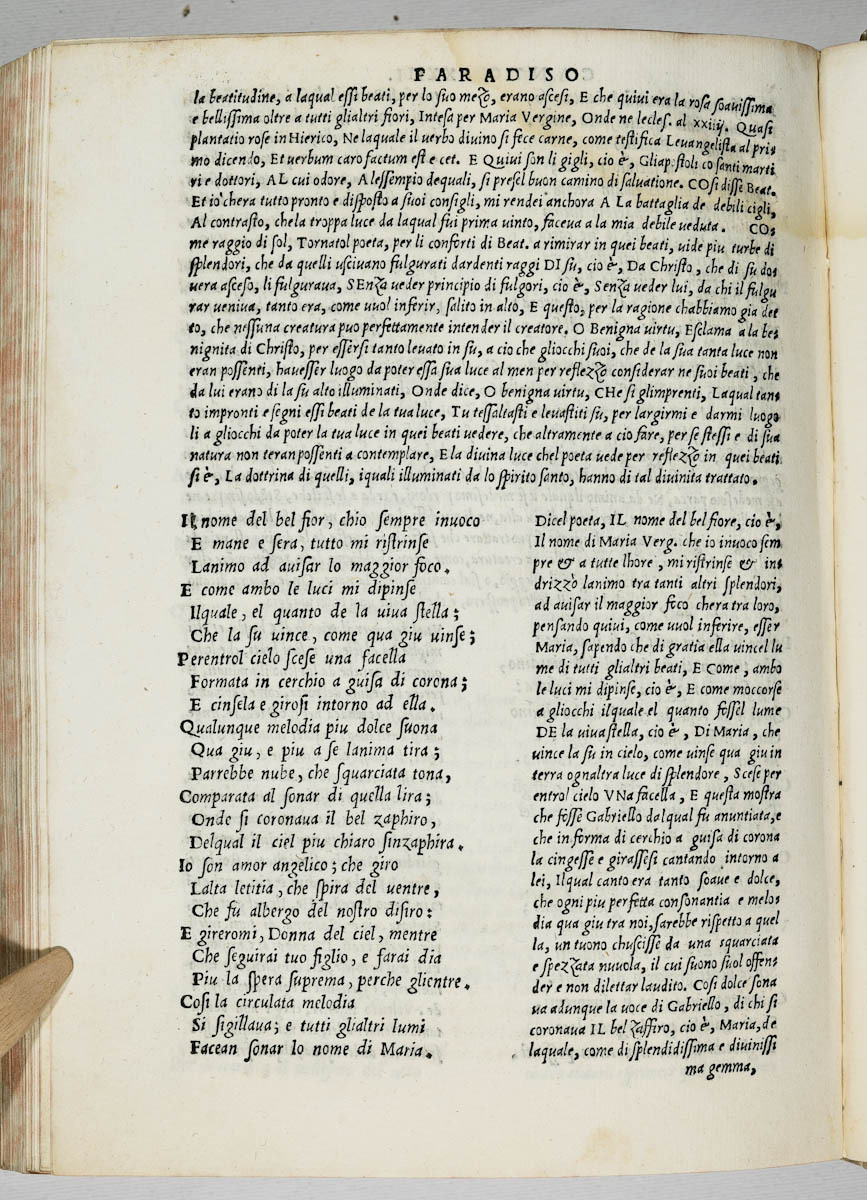 PARADISO
la beatitudine, a laqual essi beati, per lo suo mezo, erano ascesi, E che quivi era la rosa soavissima
e bellissima oltre a tutti glialtri fiori, Intesa per Maria Vergine, Onde ne lecles. al xxiiij. Quasi
plantatio rose in Hierico, Ne laquale il uerbo divino si fece carne, come testifica Levangelista al pri=
mo dicendo, Et uerbum caro factum est e cet. E Quivi son li gigli, cio è, Gliapostoli co santi marti
ri e dottori, AL cui odore, A lessempio dequali, si presel buon camino di saluatione. COsi disse Beat.
Et io'chera tutto pronto e disposto a suoi consigli, mi rendei anchora A La battaglia de debili cigli,
Al contrasto, chela troppa luce da laqual fui prima uinto, faceua a la mia debile ueduta. CO=
me raggio di sol, Tornatol poeta, per li conforti di Beat. a rimirar in quei beati, uide piu turbe di
splendori, che da quelli uscivano fulgurati dardenti raggi DI su, cio è, Da Christo, che di su do=
uera asceso, li fulguraua, SEnza ueder principio di fulgori, cio è, Senza ueder lui, da chi il fulgu
rar ueniua, tanto era, come uuol inferir, salito in alto, E questo, per la ragione chabbiamo gia det
to, che nessuna creatura puo perfettamente intender il creatore. O Benigna uirtu, Esclama a la be=
nignita di Christo, per essersi tanto leuato in su, a cio che gliocchi suoi, che de la sua tanta luce non
eran possenti, hauesser luogo da poter essa sua luce al men per reflezzo considerar ne suoi beati, che
da lui erano di la su alto illuminati, Onde dice, O benigna uirtu, CHe si glimprenti, Laqual tan=
to impronti e segni essi beati de la tua luce, Tu tessaltasti e leuastiti su, per largirmi e darmi luogo
li a gliocchi da poter la tua luce in quei beati uedere, che altramente a cio fare, per se stessi e di sua
natura non teran possenti a contemplare, E la diuina luce chel poeta uede per reflezzo in quei beati
si è, La dottrina di quelli, iquali illuminati da lo spirito santo, hanno di tal diuinita trattato.
Il nome del bel fior, chio sempre inuoco
E mane e sera, tutto mi ristrinse
Lanimo ad auisar lo maggior foco.
E come ambo le luci mi dipinse
Ilquale, el quanto de la uiua stella;
Che la su uince, come qua giu uinse;
Perentrol cielo scese una facella
Formata in cerchio a guisa di corona;
E cinsela e girosi intorno ad ella.
Qualunque melodia piu dolce suona
Qua giu, e piu a se lanima tira;
Parrebbe nube, che squarciata tona,
Comparata al sonar di quella lira;
Onde si coronaua il bel zaphiro,
Delqual il ciel piu chiaro sinzaphira.
Io son amor angelico; che giro
Lalta letitia, che spira del uentre,
Che fu albergo del nostro disiro:
E gireromi, Donna del ciel, mentre
Che seguirai tuo figlio, e farai dia
Piu la spera suprema, perche glientre.
Cosi la circulata melodia
Si sigillaua; e tutti glialtri lumi
Facean sonar lo nome di Maria.
Dicel poeta, IL nome del bel fiore, cio è,
Il nome di Maria Verg. che io inuoco sem
pre & a tutte lhore, mi ristrinse & in=
drizzò lanimo tra tanti altri splendori,
ad auisar il maggior foco chera tra loro,
pensando quiui, come uuol inferire, esser
Maria, sapendo che di gratia ella uincel lu
me di tutti glialtri beati, E Come, ambo
le luci mi dipinse, cio è, E come moccorse
a gliocchi ilquale el quanto fossel lume
DE la uiua stella, cio è, Di Maria, che
uince la su in cielo, come uinse qua giu in
terra ognaltra luce di splendore, Scese per
entrol cielo VNa facella, E questa mostra
che fosse Gabriello dalqual fu anuntiata, e
che in forma di cerchio a guisa di corona
la cingesse e girassesi cantando intorno a
lei, Ilqual canto era tanto soaue e dolce,
che ogni piu perfetta consonantia e melo=
dia qua giu tra noi, sarebbe rispetto a quel
la, un tuono chuscisse da una squarciata
e spezzata nuuola, il cui suono suol offen=
der e non dilettar laudito. Cosi dolce sona
ua adunque la uoce di Gabriello, di chi si
coronaua IL bel zaffiro, cio è, Maria, de
laquale, come di splendidissima e diuinissi
ma gemma,